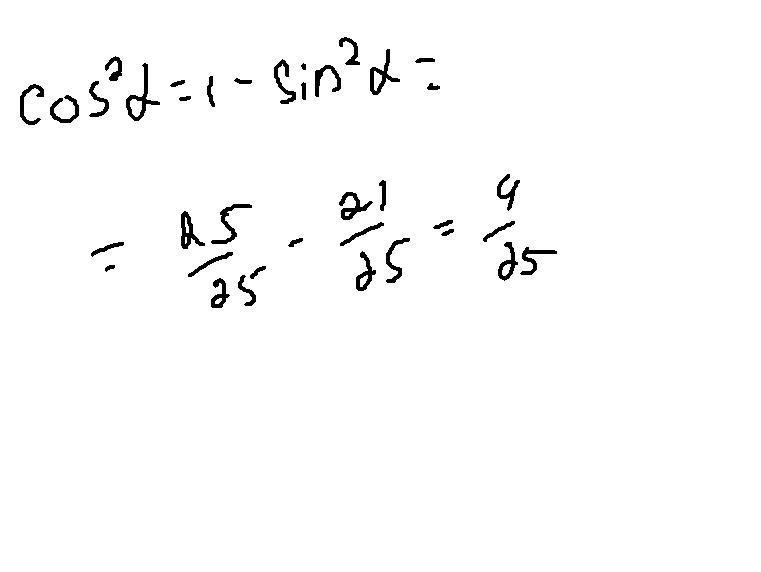 cos²α = 1 - sin²α =
= 25/25 - 21/25 = 4/25